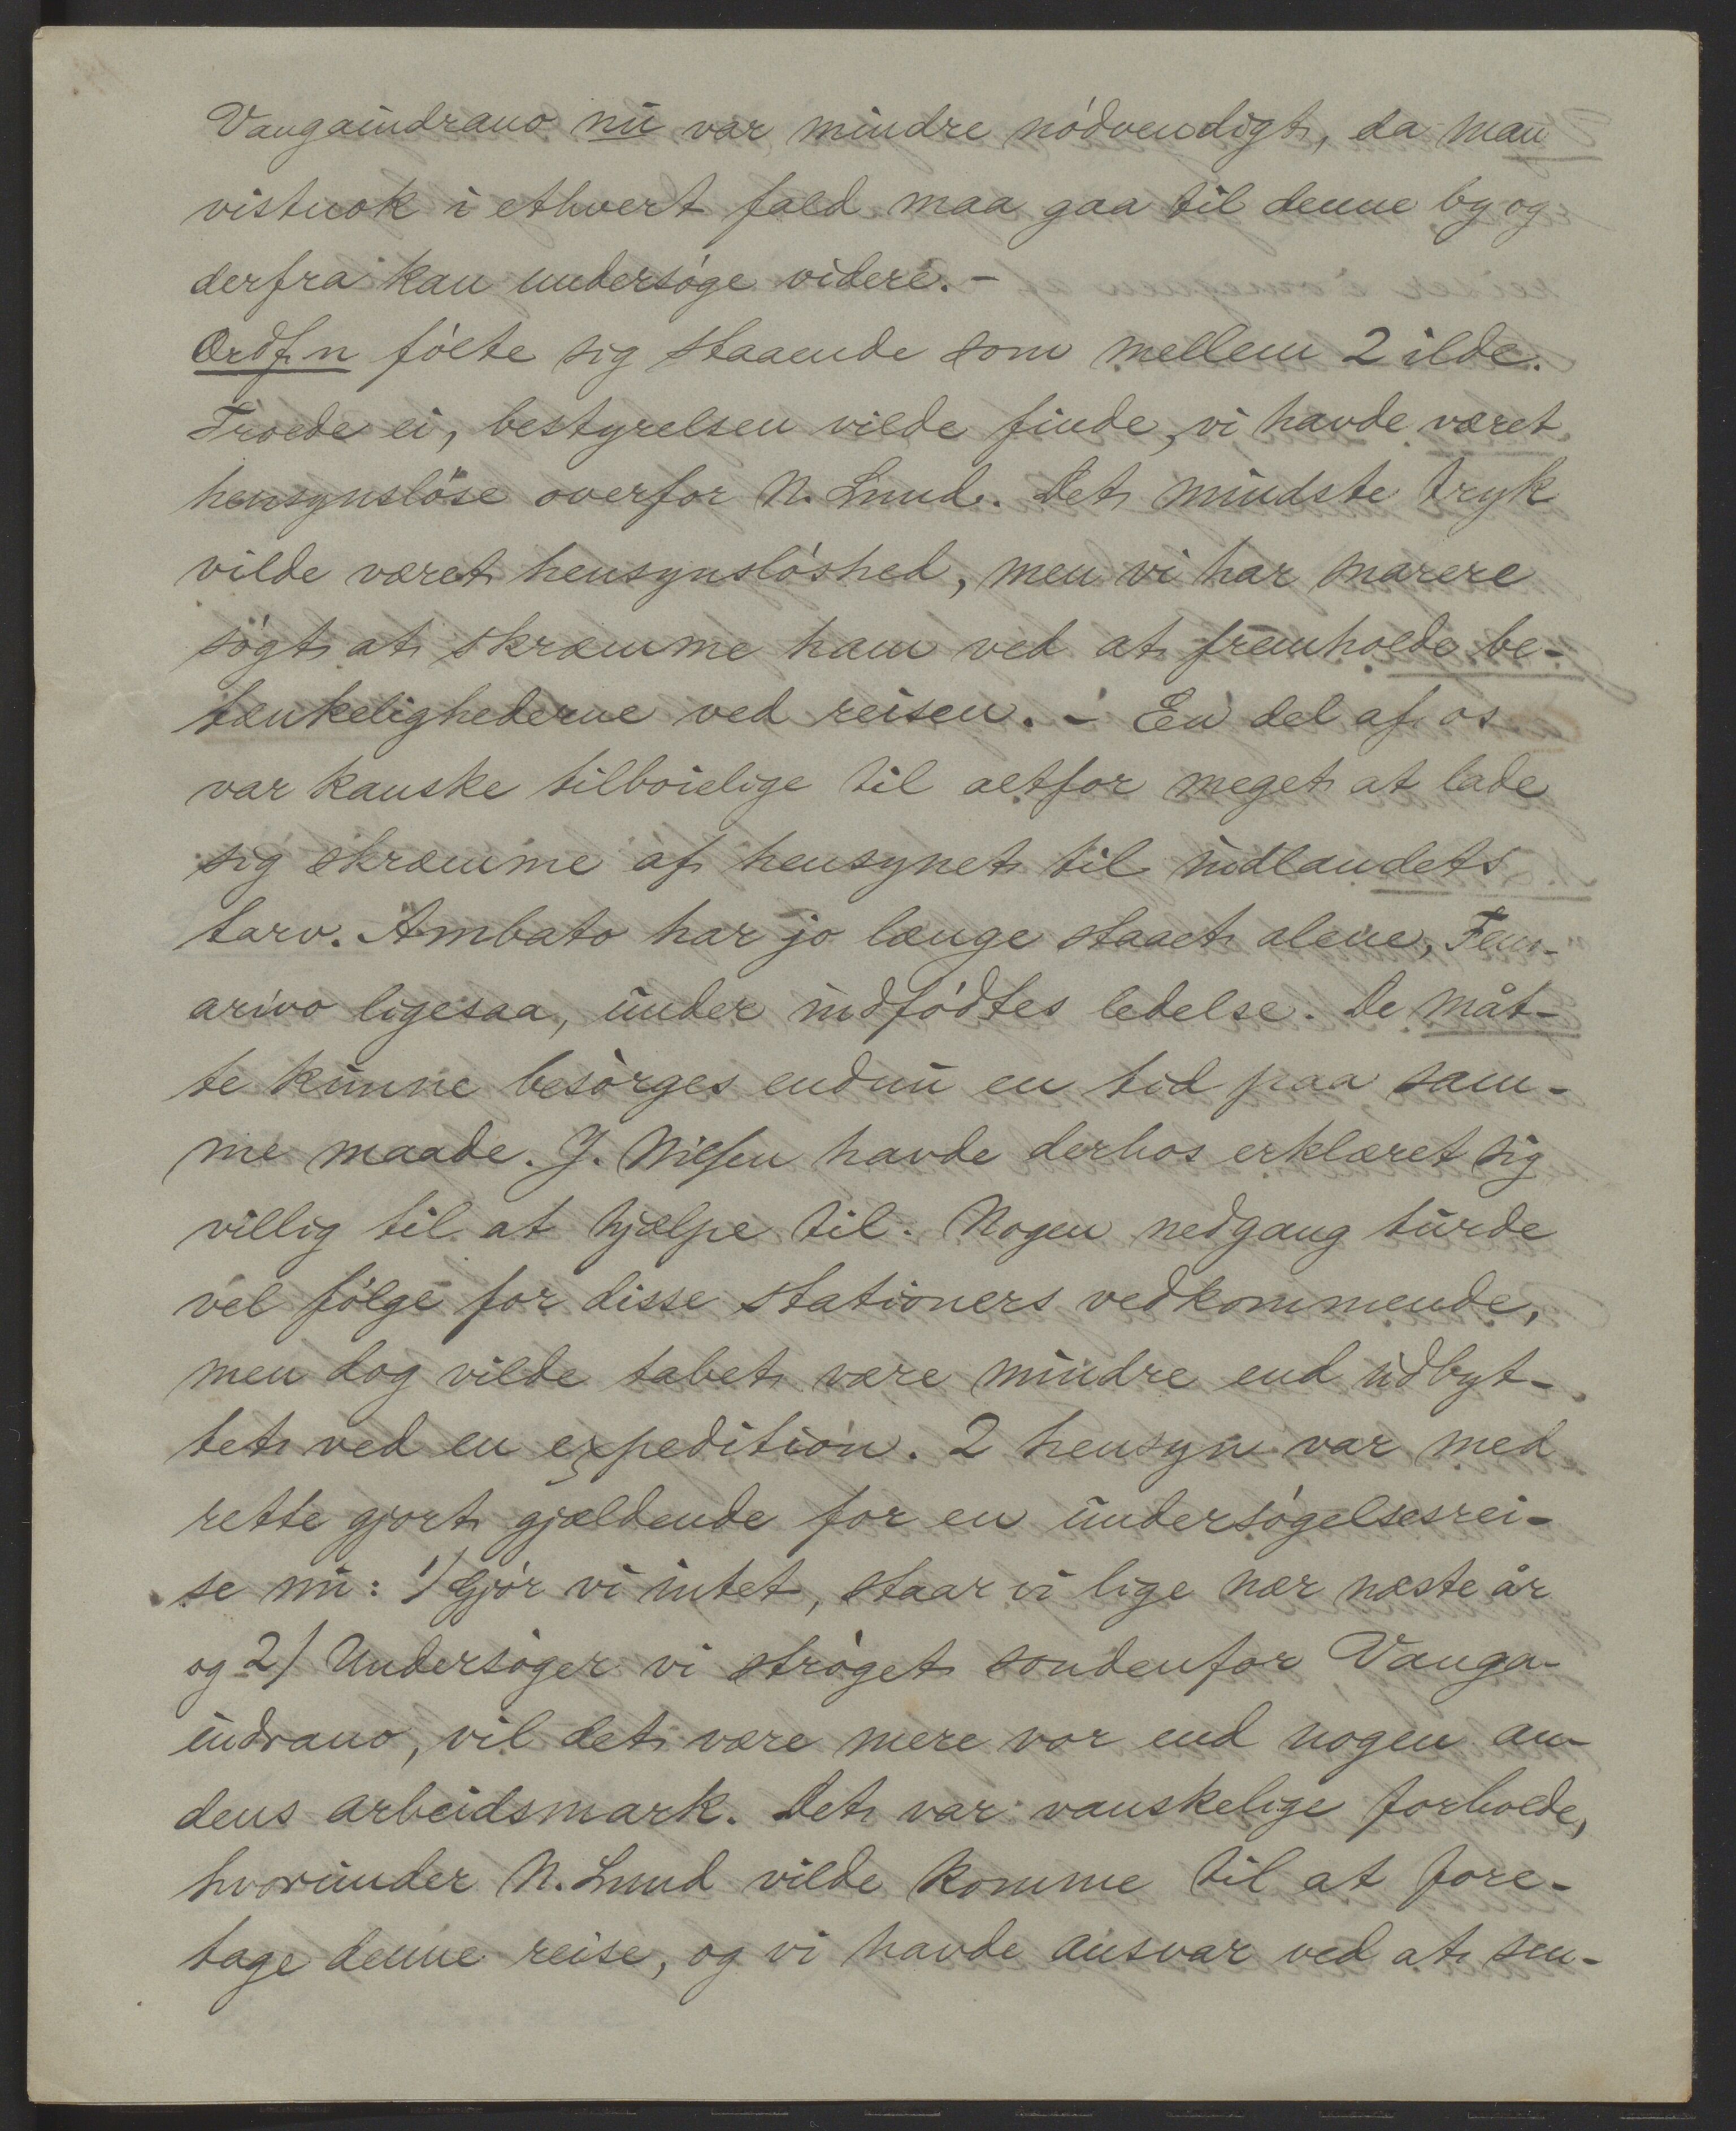 Vangaindrano nu var mindre nódvendigt, da man
vistnok i ethvert fald maa gaa til denne by og
derfra kan undersóge videre. -
Ordf.n fólte sig staaende som mellem 2 ilde.
Troede ei, bestyrelsen vilde finde, vi havde været
hensynslöse overfor N. Lund. Det mindste tryk
vilde været hensynslóshed, men vi har snarere
sógt at skræmme ham ved at fremholde be-
tænkelighederne ved reisen. - En del af os
var kanske tilboielige til altfor meget at lade
sig skræmme af hensynet til indlandets
tarv. Ambato har jo længe staaet alene, Fen-
arivo ligesaa, under indfódtes ledelse. De måt-
te kunne besórges endnu en tid paa sam-
me maade. J. Nilsen havde derhos erklæret sig
villig til at hjælpe til. Nogen nedgang turde
vel fólge for disse stationers vedkommende,
men dog vilde tabet være mindre end udbyt-
tet ved en expedition. 2 hensyn var med
rette gjort gjældende for en undersógelsesrei-
se nu: 1) Gjór vi intet, staar vi lige nær næste år
og 2) Undersóger vi stróget sondenfor Vanga-
indrano, vil det være mere vor end nogen an-
dens arbeidsmark. Det var vanskelige forholde,
hvorunder N. Lund vilde komme til at fore-
tage denne reise, og vi havde ansvar ved at sen-